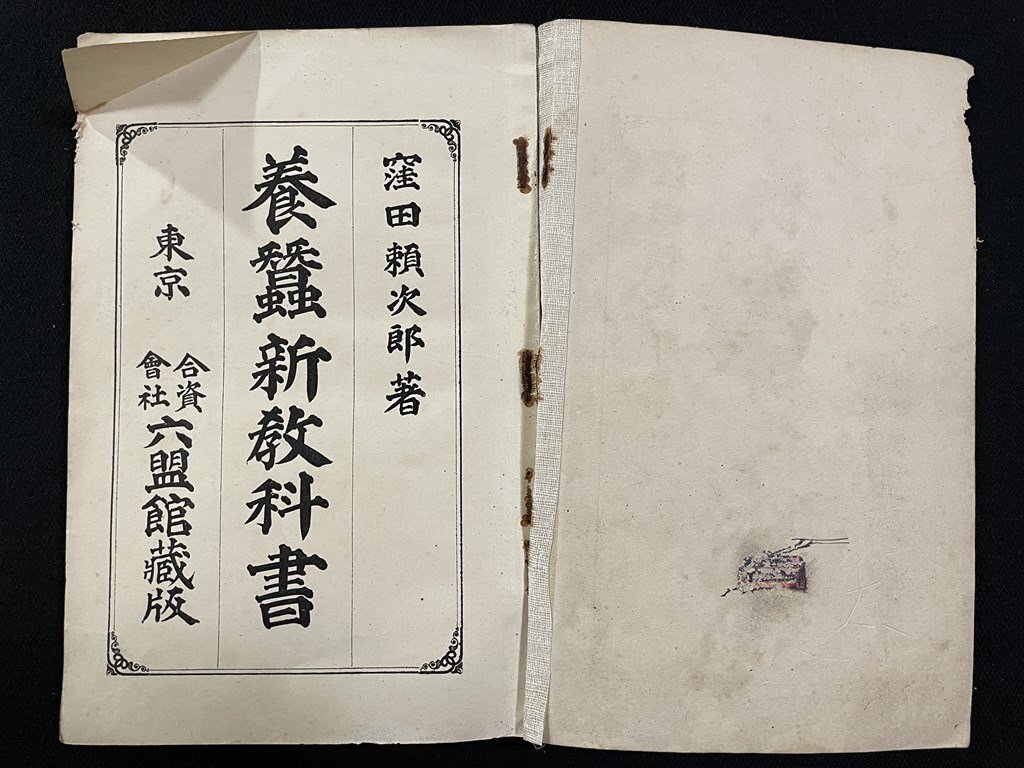 窪田賴次郎著
養蠶新教科書
東京
合資會社六盟館藏版